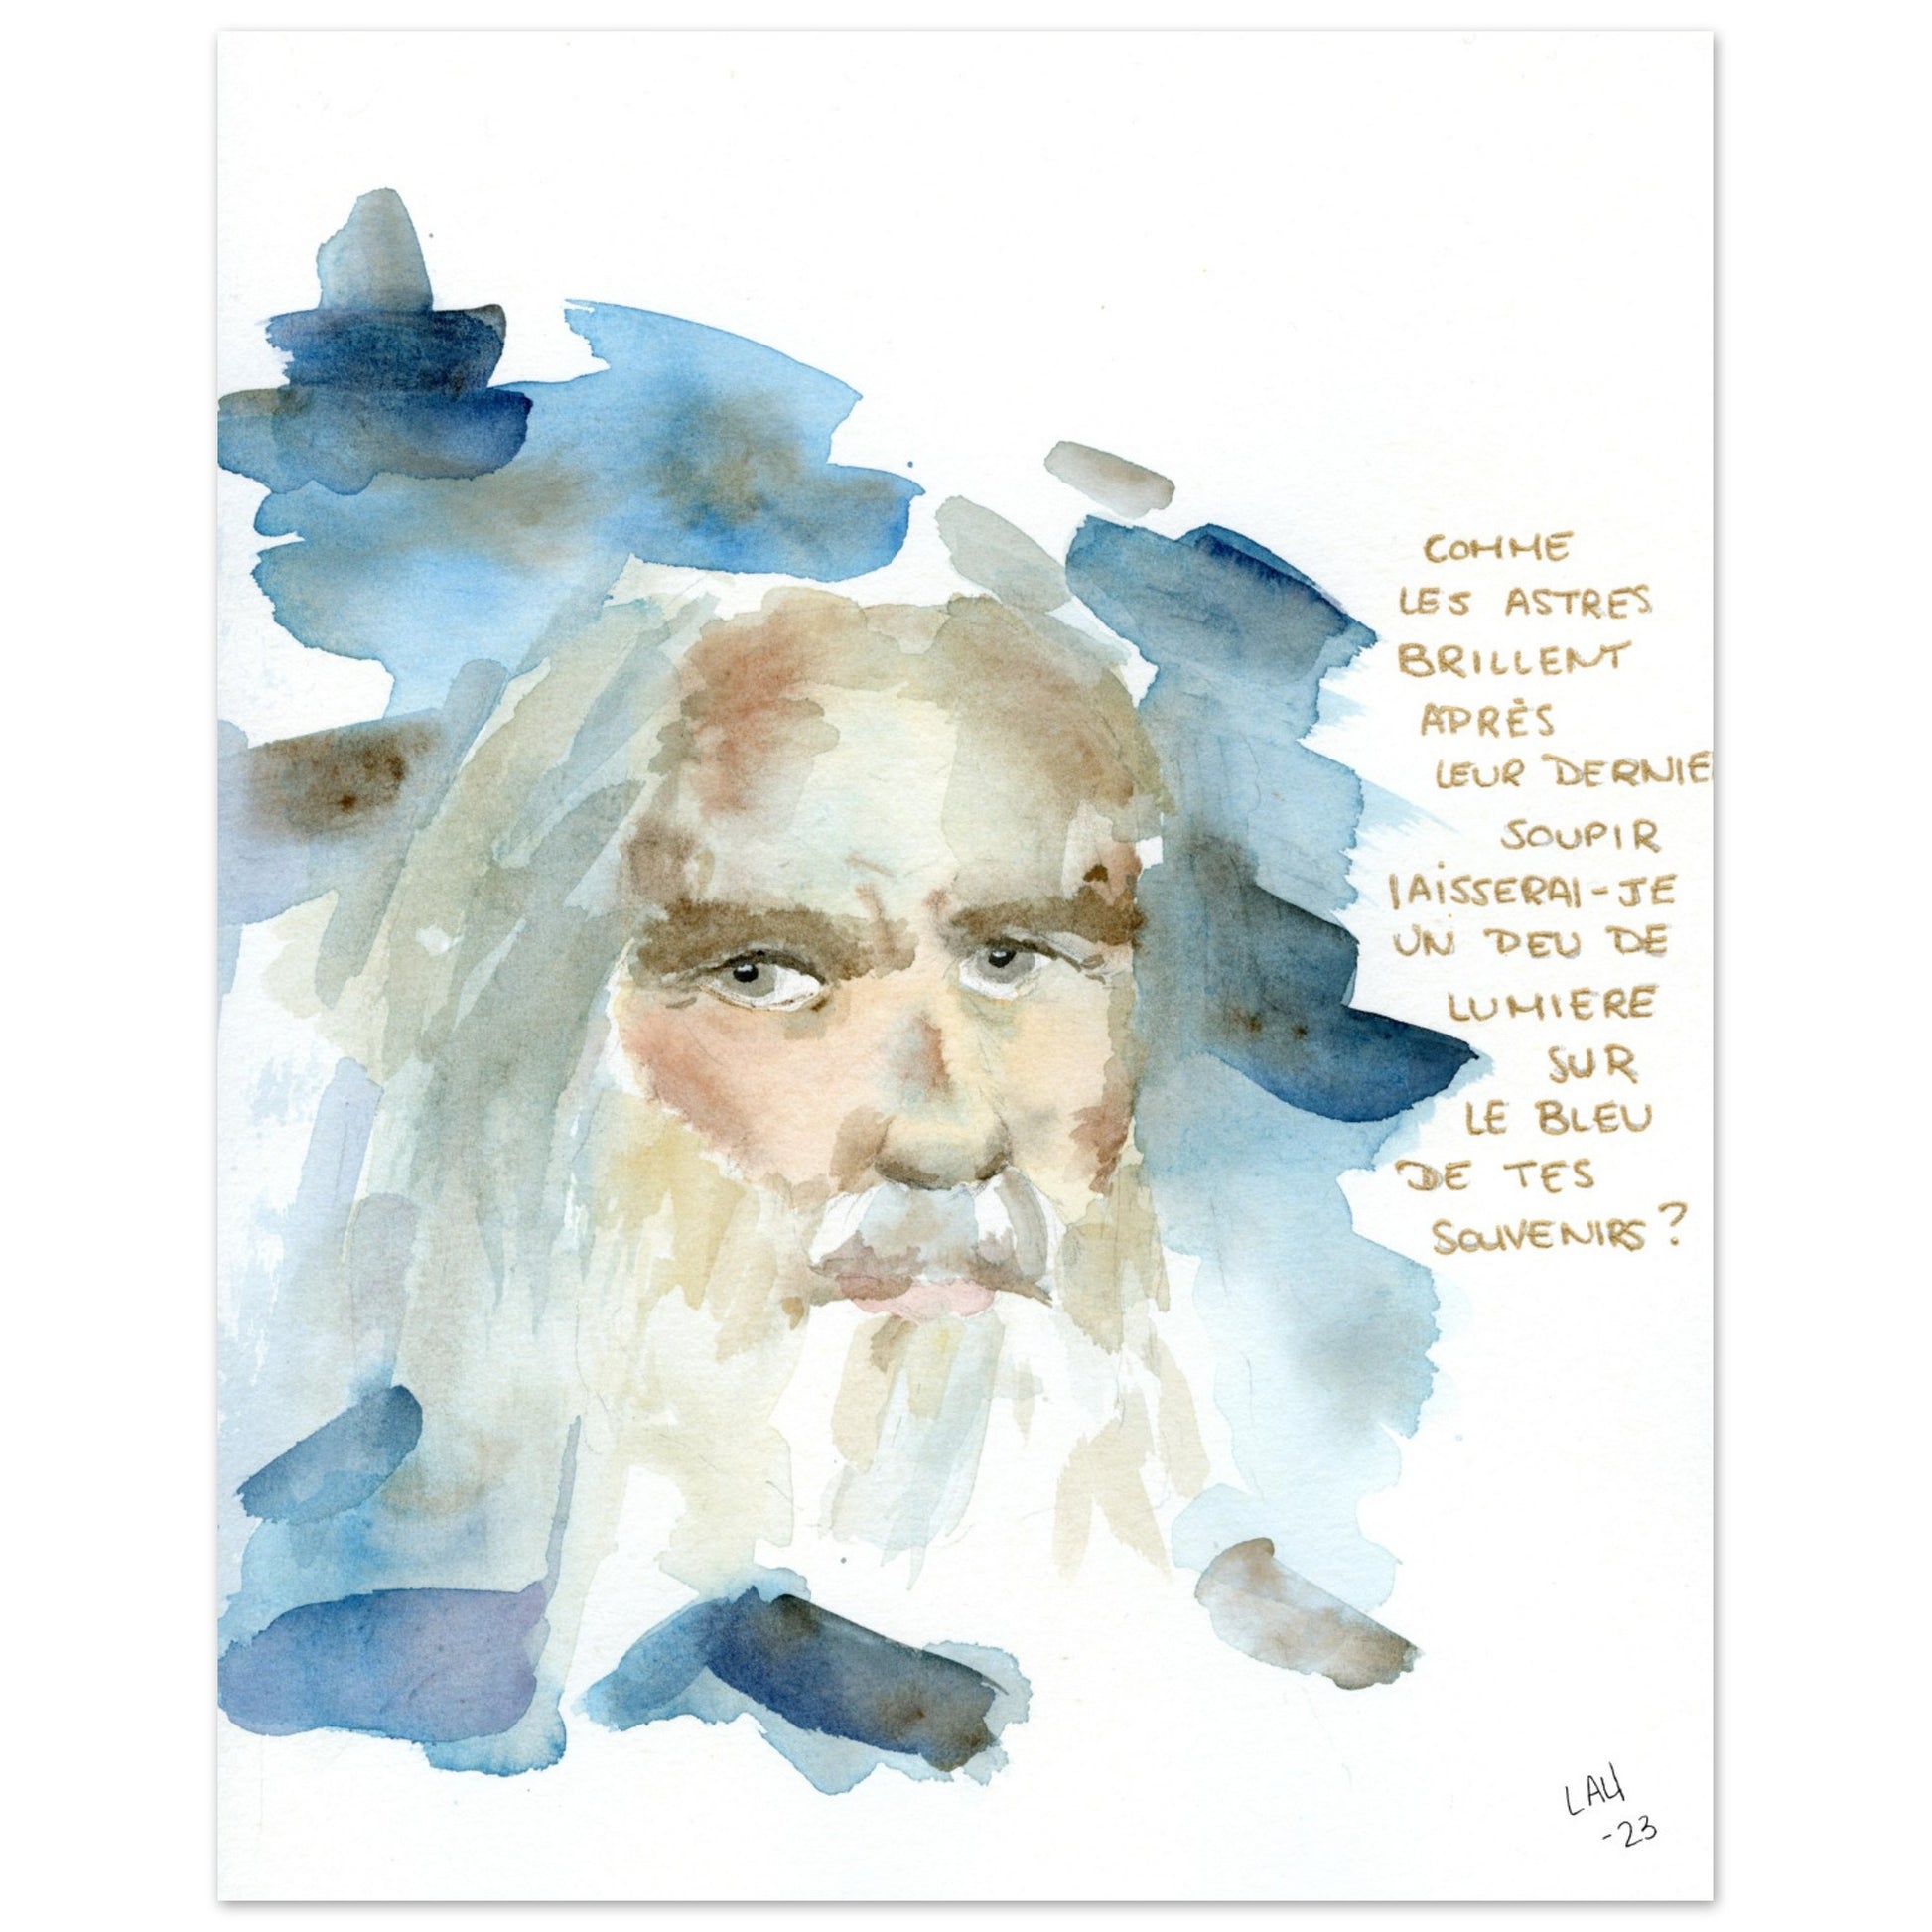 COMME
LES ASTRES
BRILLENT
APRÈS
LEUR DERNIE
SOUPIR
LAISSERAI-JE
UN PEU DE
LUMIERE
SUR
LE BLEU
DE TES
SOUVENIRS ?
LAU
-23